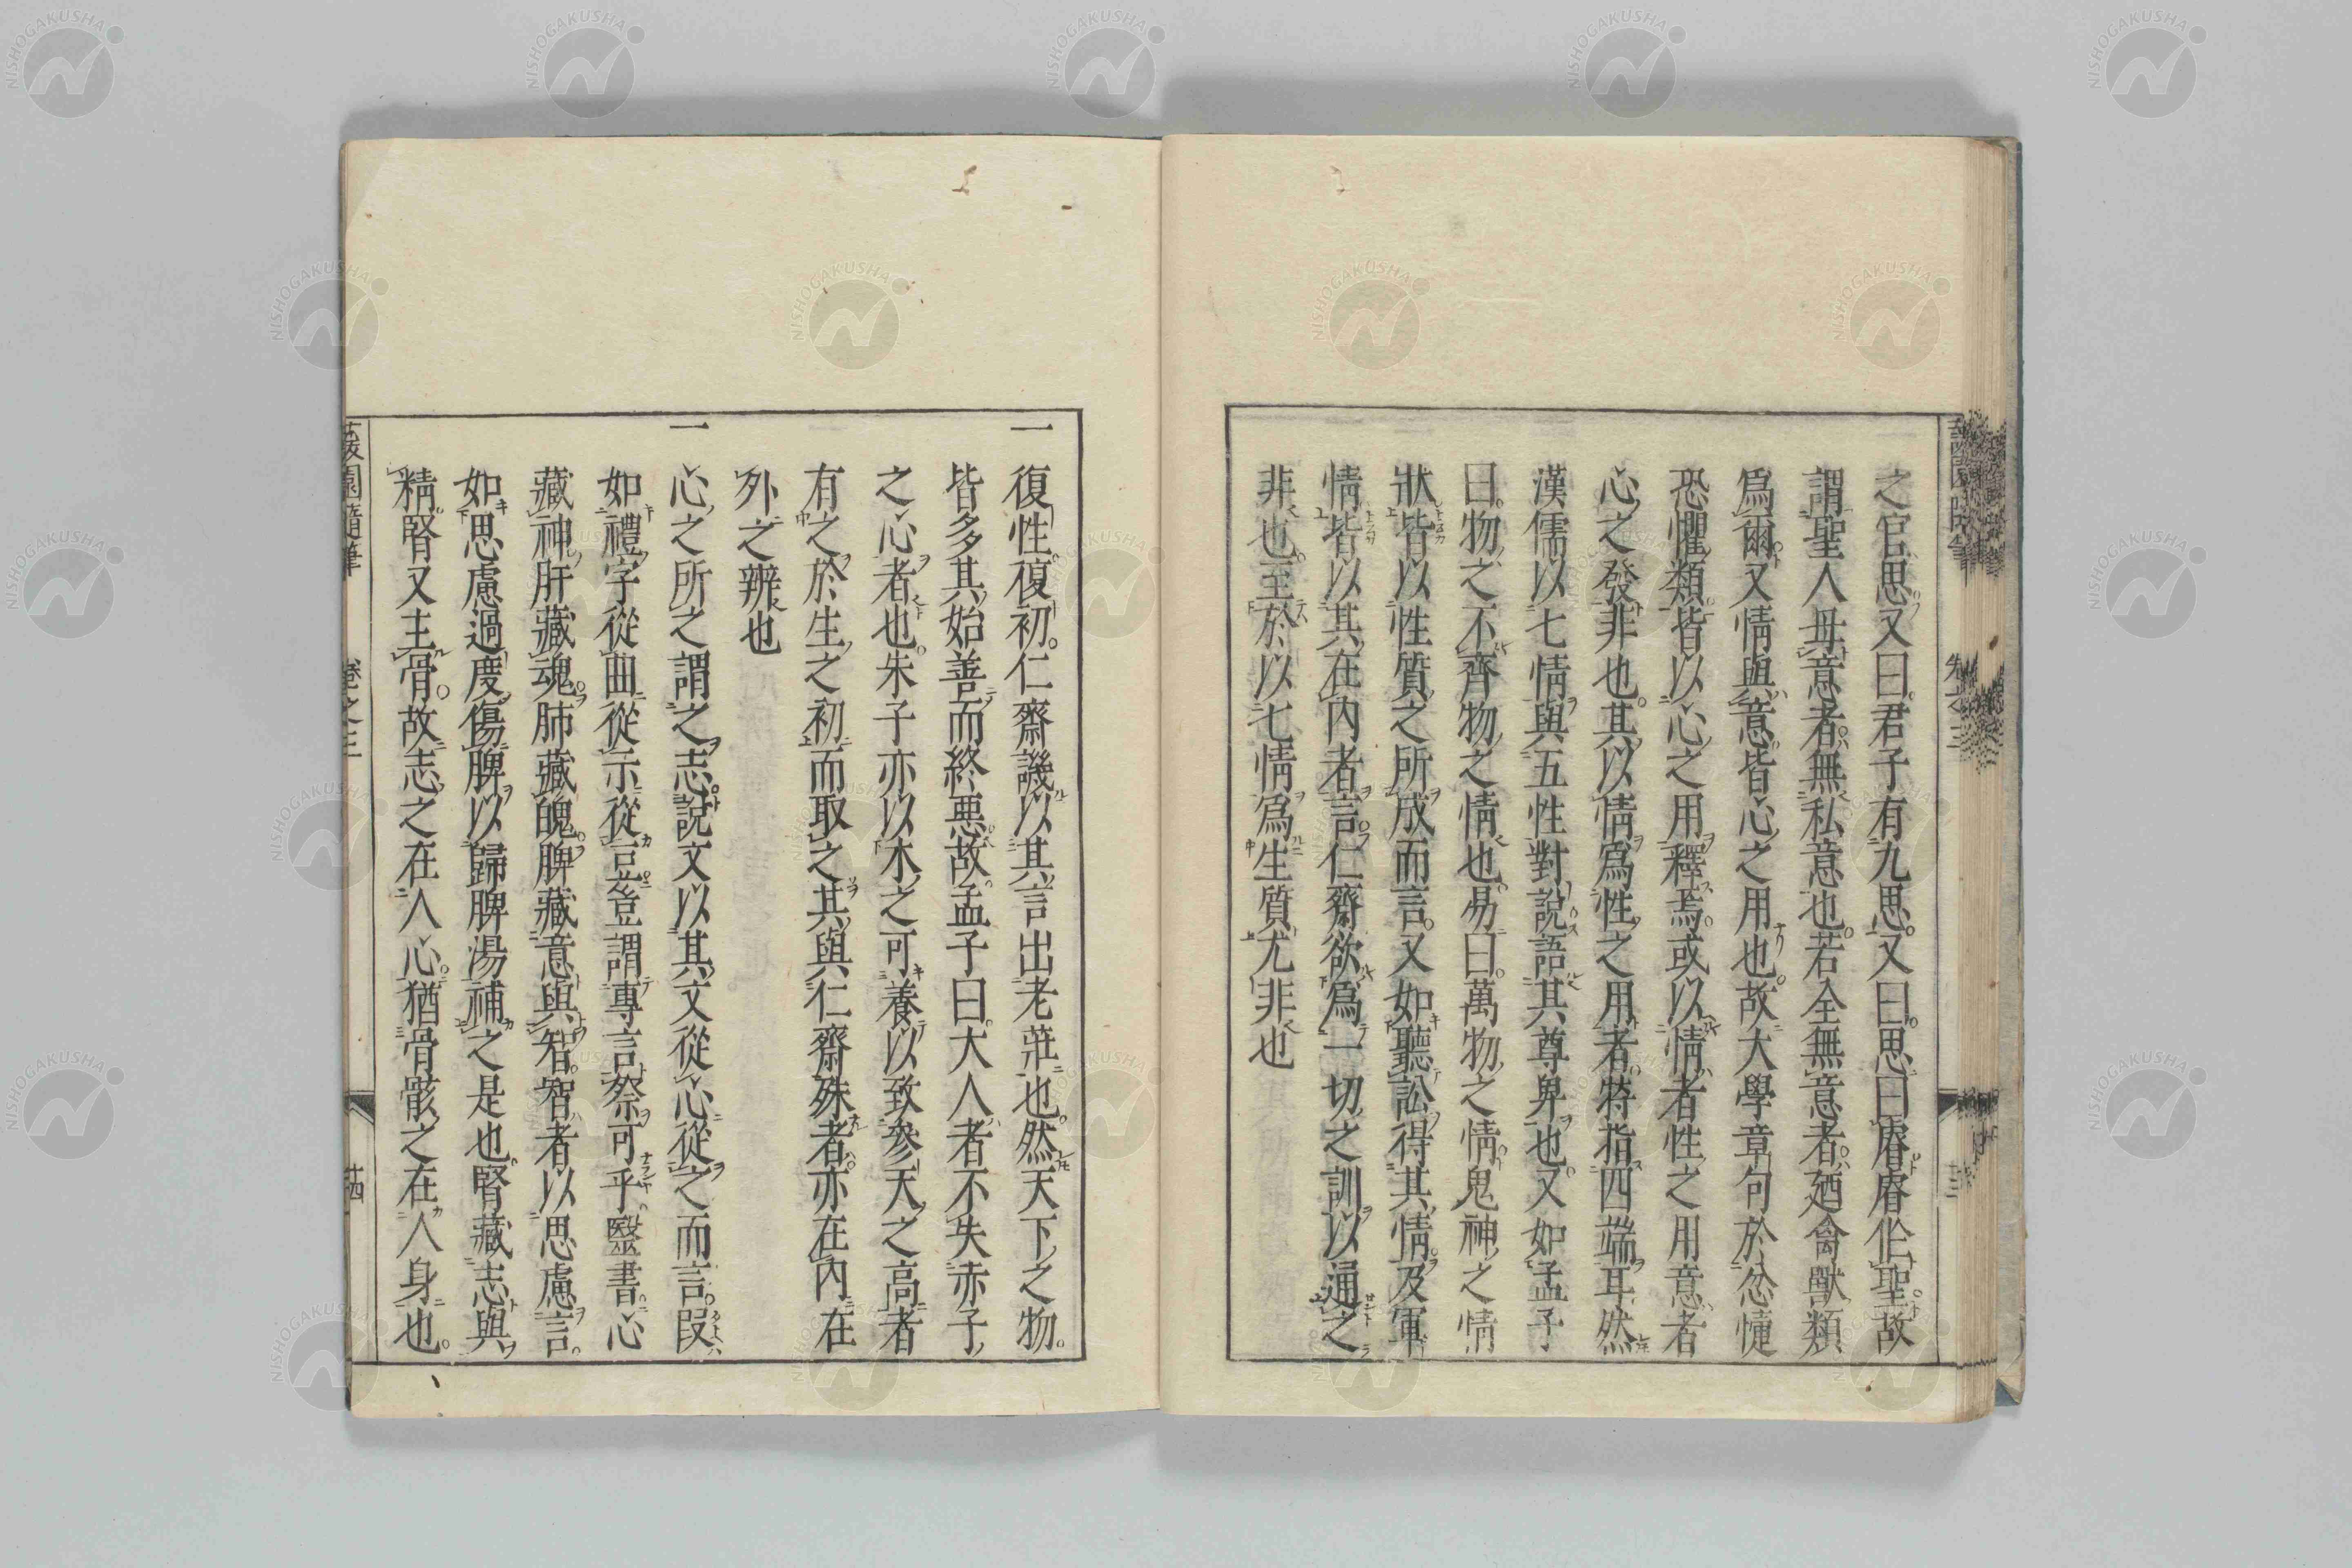 之官思又曰君子有九思又曰思曰睿睿作聖故
謂聖人毋意者無私意也若全無意者廼禽獸類
爲爾又情與意皆心之用也故大學章句於忿懥
恐懼類皆以心之用釋焉或以情者性之用意者
心之發非也其以情爲性之用者特指四端耳然
漢儒以七情與五性對說語其尊卑也又如孟子
曰物之不齊物之情也易曰萬物之情鬼神之情
狀皆以性質之所成而言又如聽訟得其情及軍
情皆以其在內者言仁齋欲爲一切之訓以通之
非也至於以七情爲生質尤非也
一復性復初仁齋譏以其言出老莊也然天下之物
皆多其始善而終惡故孟子曰大人者不失赤子
之心者也朱子亦以木之可養以致參天之高者
有之於生之初而取之其與仁齋殊者亦在內在
外之辨也
一心之所之謂之志說文以其文從心從之而言叚
如禮字從曲從示從豆豈謂專言祭可乎毉書心
藏神肝藏魂肺藏魄脾藏意與智智者以思慮言
如思慮過度傷脾以歸脾湯補之是也腎藏志與
精腎又主骨故志之在人心猶骨骸之在人身也
蘐園隨筆 卷之三 十四
NISHOGAKUSHA